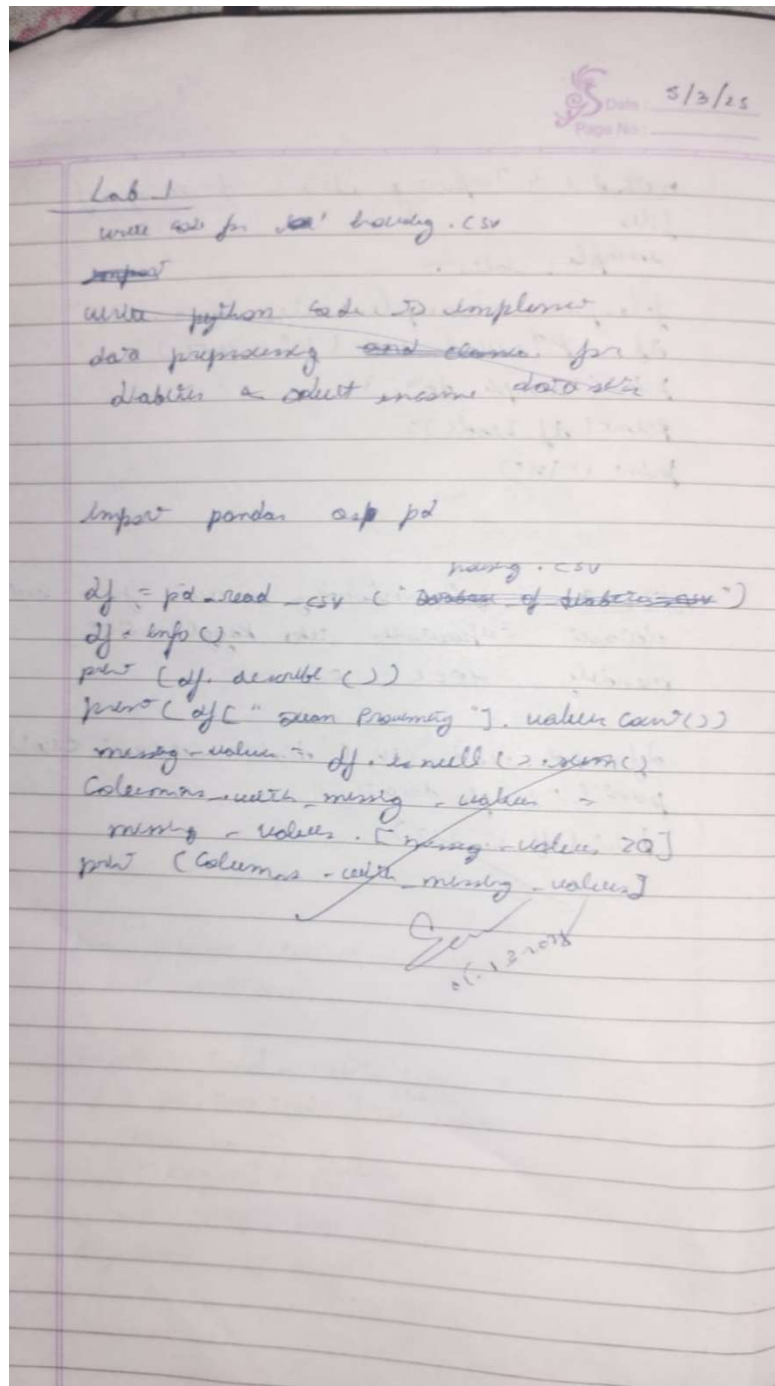 Date : 5/3/25
Page No :
Lab 1
write code for housing.csv
write python code to implement
data preprocessing for
diabetes & adult income dataset
import pandas as pd
housing.csv
df = pd_read_csv (" ")
df = info()
print (df. describe ())
print (df[" Ocean Proximity "]. values count())
missing_values = df.isnull().sum()
Columns_with_missing_values =
missing_values. [missing_values >0]
print (Columns_with_missing_values]